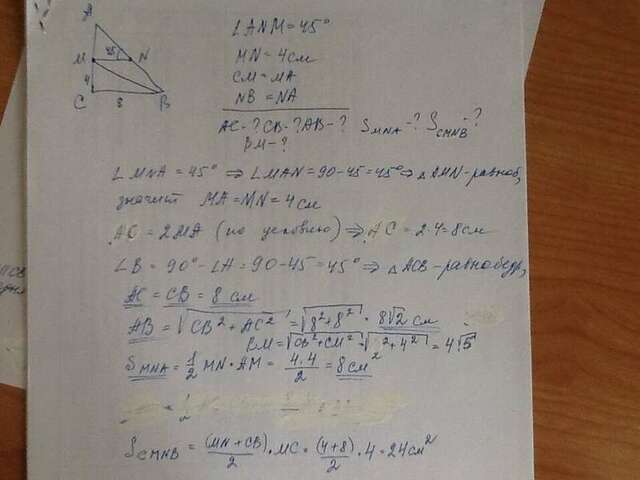 A
M 45 N
4
C 8 B
∠ANM = 45°
MN = 4 см
CM = MA
NB = NA
AC - ? CB - ? AB - ? S MNA - ? S CMNB - ?
BM - ?
∠MNA = 45° ⇒ ∠MAN = 90-45 = 45° ⇒ △AMN - равноб,
значит MA = MN = 4 см
AC = 2MA (по условию) ⇒ AC = 2·4 = 8 см
∠B = 90° - ∠A = 90-45 = 45° ⇒ △ACB - равнобедр,
AC = CB = 8 см
AB = √(CB² + AC²) = √(8² + 8²) = 8√2 см
√(CB² + CM²) = √( ² + 4²) = 4√5
S MNA = 1/2 MN · AM = 4·4/2 = 8 см²
S CMNB = (MN + CB)/2 · MC = (4+8)/2 · 4 = 24 см²